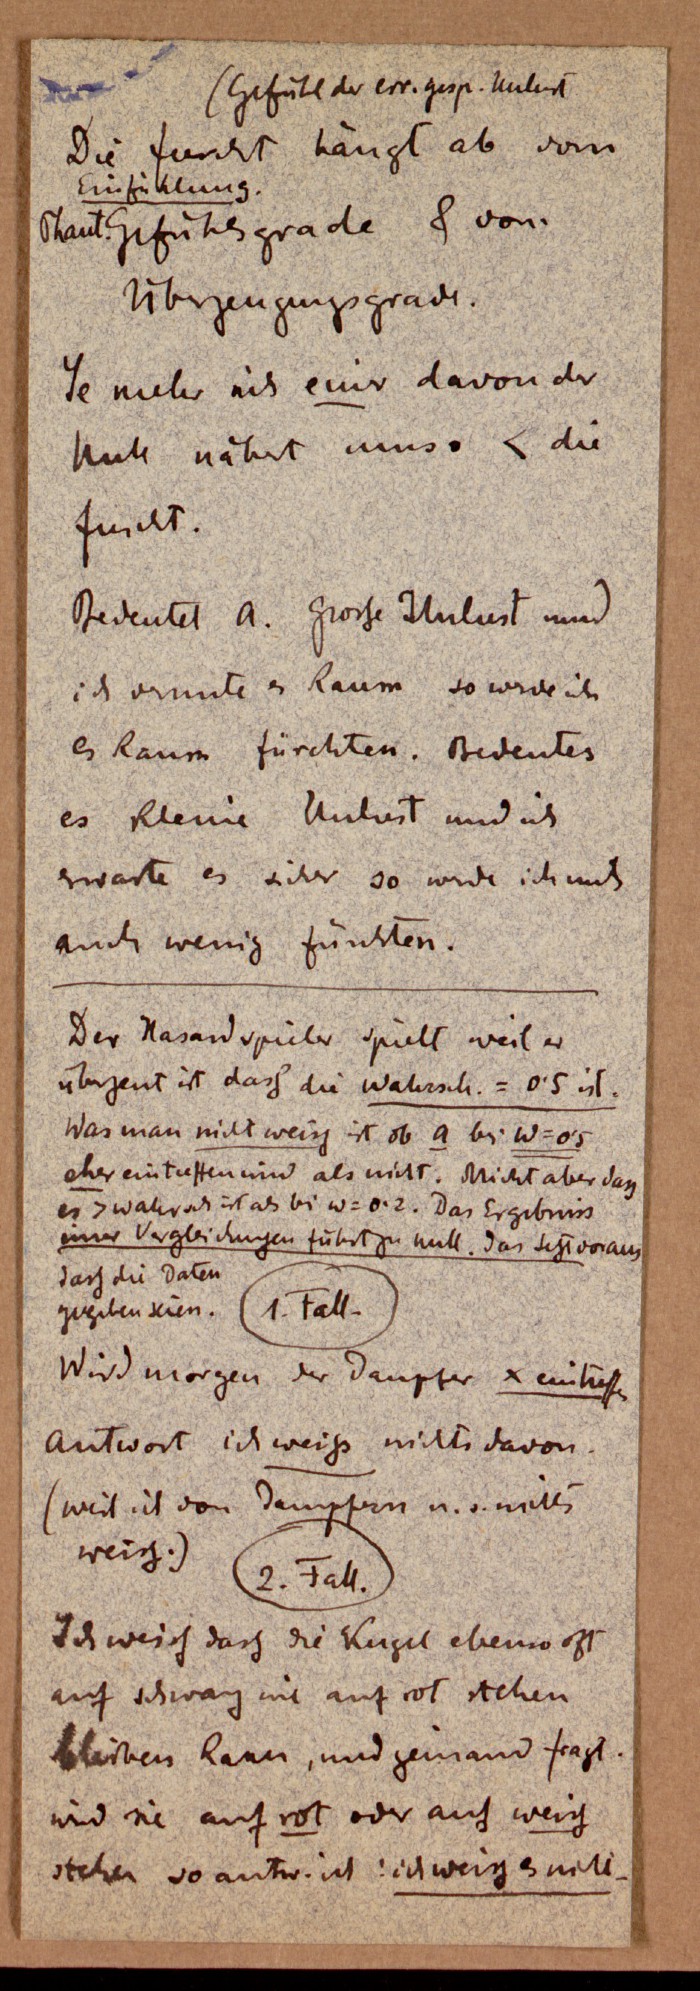 (Gefühl der err. gesp. Unlust
Die Furcht hängt ab vom
Einfühlung.
Phant. Gefühlsgrade & vom
Überzeugungsgrade.
Je mehr sich einer davon der
Null nähert umso < die
Furcht.
Bedeutet A. grosse Unlust und
ich vermute es kaum so werde ich
es kaum fürchten. Bedeutet
es kleine Unlust und ich
erwarte es sicher so werde ich mich
auch wenig fürchten.
Der Hasardspieler spielt weil er
überzeut ist dass die Wahrsch. = 0·5 ist.
Was man nicht weiss ist ob A bei W=0·5
eher eintreffen wird als nicht. Nicht aber dass
es > wahrsch ist als bei W=0·2. Das Ergebniss
einer Vergleichungen führt zu Null. Das setzt voraus
dass die Daten
gegeben seien. 1. Fall.
Wird morgen der Dampfer x eintreffen
Antwort ich weiss nichts davon.
(weil ich von Dampfern u. s. nichts
weiss.)
2. Fall.
Ich weiss dass die Kugel ebenso oft
auf schwarz wie auf rot stehen
bleiben kann, und jemand fragt.
wird sie auf rot oder auf weiss
stehen so antw. ich: ich weiss es nicht